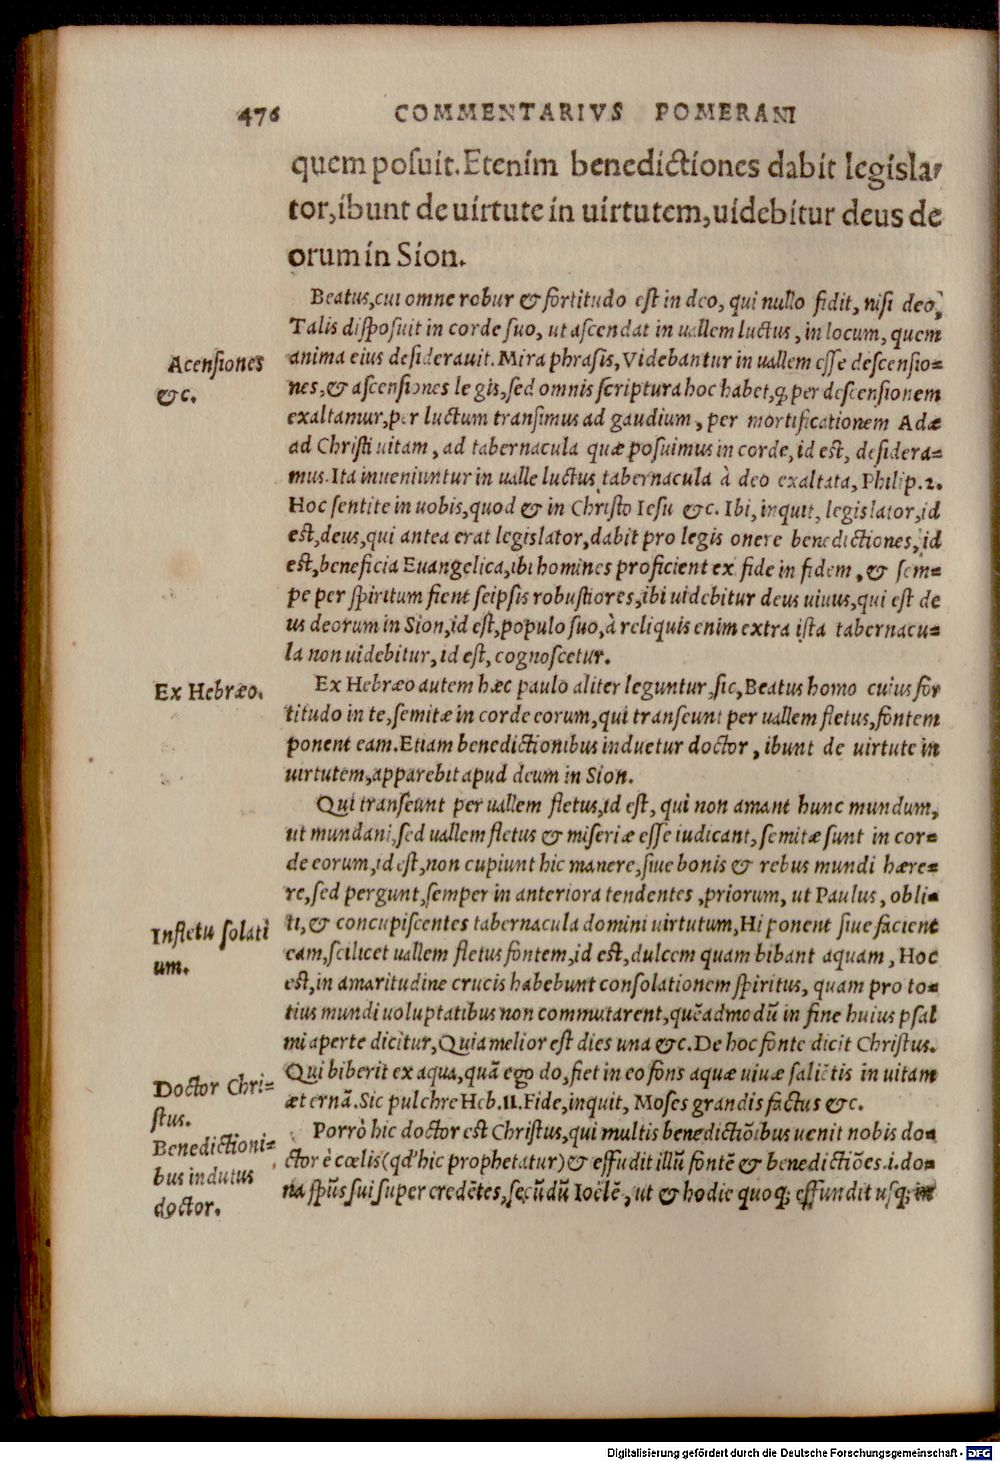 476 COMMENTARIVS POMERANI
quem posuit. Etenim benedictiones dabit legisla-
tor, ibunt de uirtute in uirtutem, uidebitur deus de
orum in Sion.
Beatus, cui omne robur & fortitudo est in deo, qui nullo fidit, nisi deo,
Talis disposuit in corde suo, ut ascendat in uallem luctus, in locum, quem
Acensiones
anima eius desiderauit. Mira phrasis, Videbantur in uallem esse descensio=
&c.
nes, & ascensiones legis, sed omnis scriptura hoc habet, ꝙ per descensionem
exaltamur, per luctum transimus ad gaudium, per mortificationem Adæ
ad Christi uitam, ad tabernacula quæ posuimus in corde, id est, desidera=
mus. Ita inueniuntur in ualle luctus tabernacula à deo exaltata, Philip. 2.
Hoc sentite in uobis, quod & in Christo Iesu &c. Ibi, inquit, legislator, id
est, deus, qui antea erat legislator, dabit pro legis onere benedictiones, id
est, beneficia Euangelica, ibi homines proficient ex fide in fidem, & sem=
pe per spiritum fient seipsis robustiores, ibi uidebitur deus uiuus, qui est de
us deorum in Sion, id est, populo suo, à reliquis enim extra ista tabernacu=
la non uidebitur, id est, cognoscetur.
Ex Hebræo.
Ex Hebræo autem hæc paulo aliter leguntur, sic, Beatus homo cuius for
titudo in te, semitæ in corde eorum, qui transeunt per uallem fletus, fontem
ponent eam. Etiam benedictionibus induetur doctor, ibunt de uirtute in
uirtutem, apparebit apud deum in Sion.
Qui transeunt per uallem fletus, id est, qui non amant hunc mundum,
ut mundani, sed uallem fletus & miseriæ esse iudicant, semitæ sunt in cor=
de eorum, id est, non cupiunt hic manere, siue bonis & rebus mundi hære=
re, sed pergunt, semper in anteriora tendentes, priorum, ut Paulus, obli=
In fletu solati
ti, & concupiscentes tabernacula domini uirtutum, Hi ponent siue facient
um.
eam, scilicet uallem fletus fontem, id est, dulcem quam bibant aquam, Hoc
est, in amaritudine crucis habebunt consolationem spiritus, quam pro to=
tius mundi uoluptatibus non commutarent, quẽadmodũ in fine huius psal
mi aperte dicitur, Quia melior est dies una &c. De hoc fonte dicit Christus.
Qui biberit ex aqua, quã ego do, fiet in eo fons aquæ uiuæ saliẽtis in uitam
Doctor Chri=
æternã. Sic pulchre Heb. 11. Fide, inquit, Moses grandis factus &c.
stus.
Porrò hic doctor est Christus, qui multis benedictiõibus uenit nobis do=
Benedictioni=
ctor è cœlis (qd' hic prophetatur) & effudit illũ fontẽ & benedictiões .i. do=
bus indutus
na spũs sui super credẽtes, secũdũ Ioëlẽ, ut & hodie quoq; effundit usq; in
doctor.
Digitalisierung gefördert durch die Deutsche Forschungsgemeinschaft - DFG